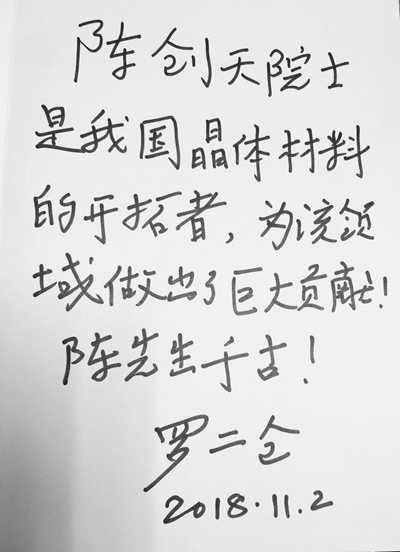 陈创天院士
是我国晶体材料
的开拓者，为该领
域做出了巨大贡献！
陈先生千古！
罗二仓
2018.11.2